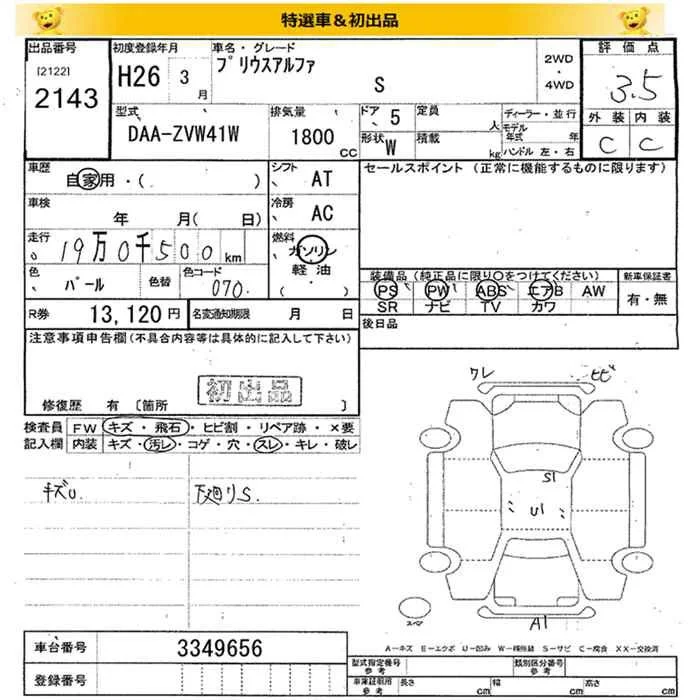 特選車＆初出品
出品番号 初度登録年月 車名・グレード 2WD ・ 4WD 評価点
[2122]
2143 H26 3月 プリウスアルファ S 3.5
型式 排気量 ドア 5 定員 人 ディーラー・並行 外装 内装
DAA-ZVW41W 1800 CC 形状 W 積載 kg モデル年式 年 ハンドル 左・右 C C
車歴 自家用・( ) シフト AT セールスポイント (正常に機能するものに限ります)
車検 年 月( 日) 冷房 AC
走行 19万0千500 km 燃料 ガソリン
軽油
( )
色 パール 色替 色コード 070 装備品 (純正品に限り○をつけてください) 新車保証書
PS PW ABS エアB AW 有・無
SR ナビ TV カワ
R券 13,120円 名変通知期限 月 日 後日品
注意事項申告欄(不具合内容等は具体的に記入して下さい)
初出品
修復歴 有 〔箇所 〕
ワレ ヒビ
検査員 FW キズ・飛石・ヒビ割・リペア跡・×要
記入欄 内装 キズ・汚レ・コゲ・穴・スレ・キレ・破レ
キズU. 下廻りS.
S1
U1
A1
スペア
A-キズ E-エクボ U-凹み W-補修跡 S-サビ C-腐食 XX-交換済
車台番号 3349656
型式指定番号 参考 類別区分番号 参考
登録番号 車庫証取用 参考 長さ cm 幅 cm 高さ cm